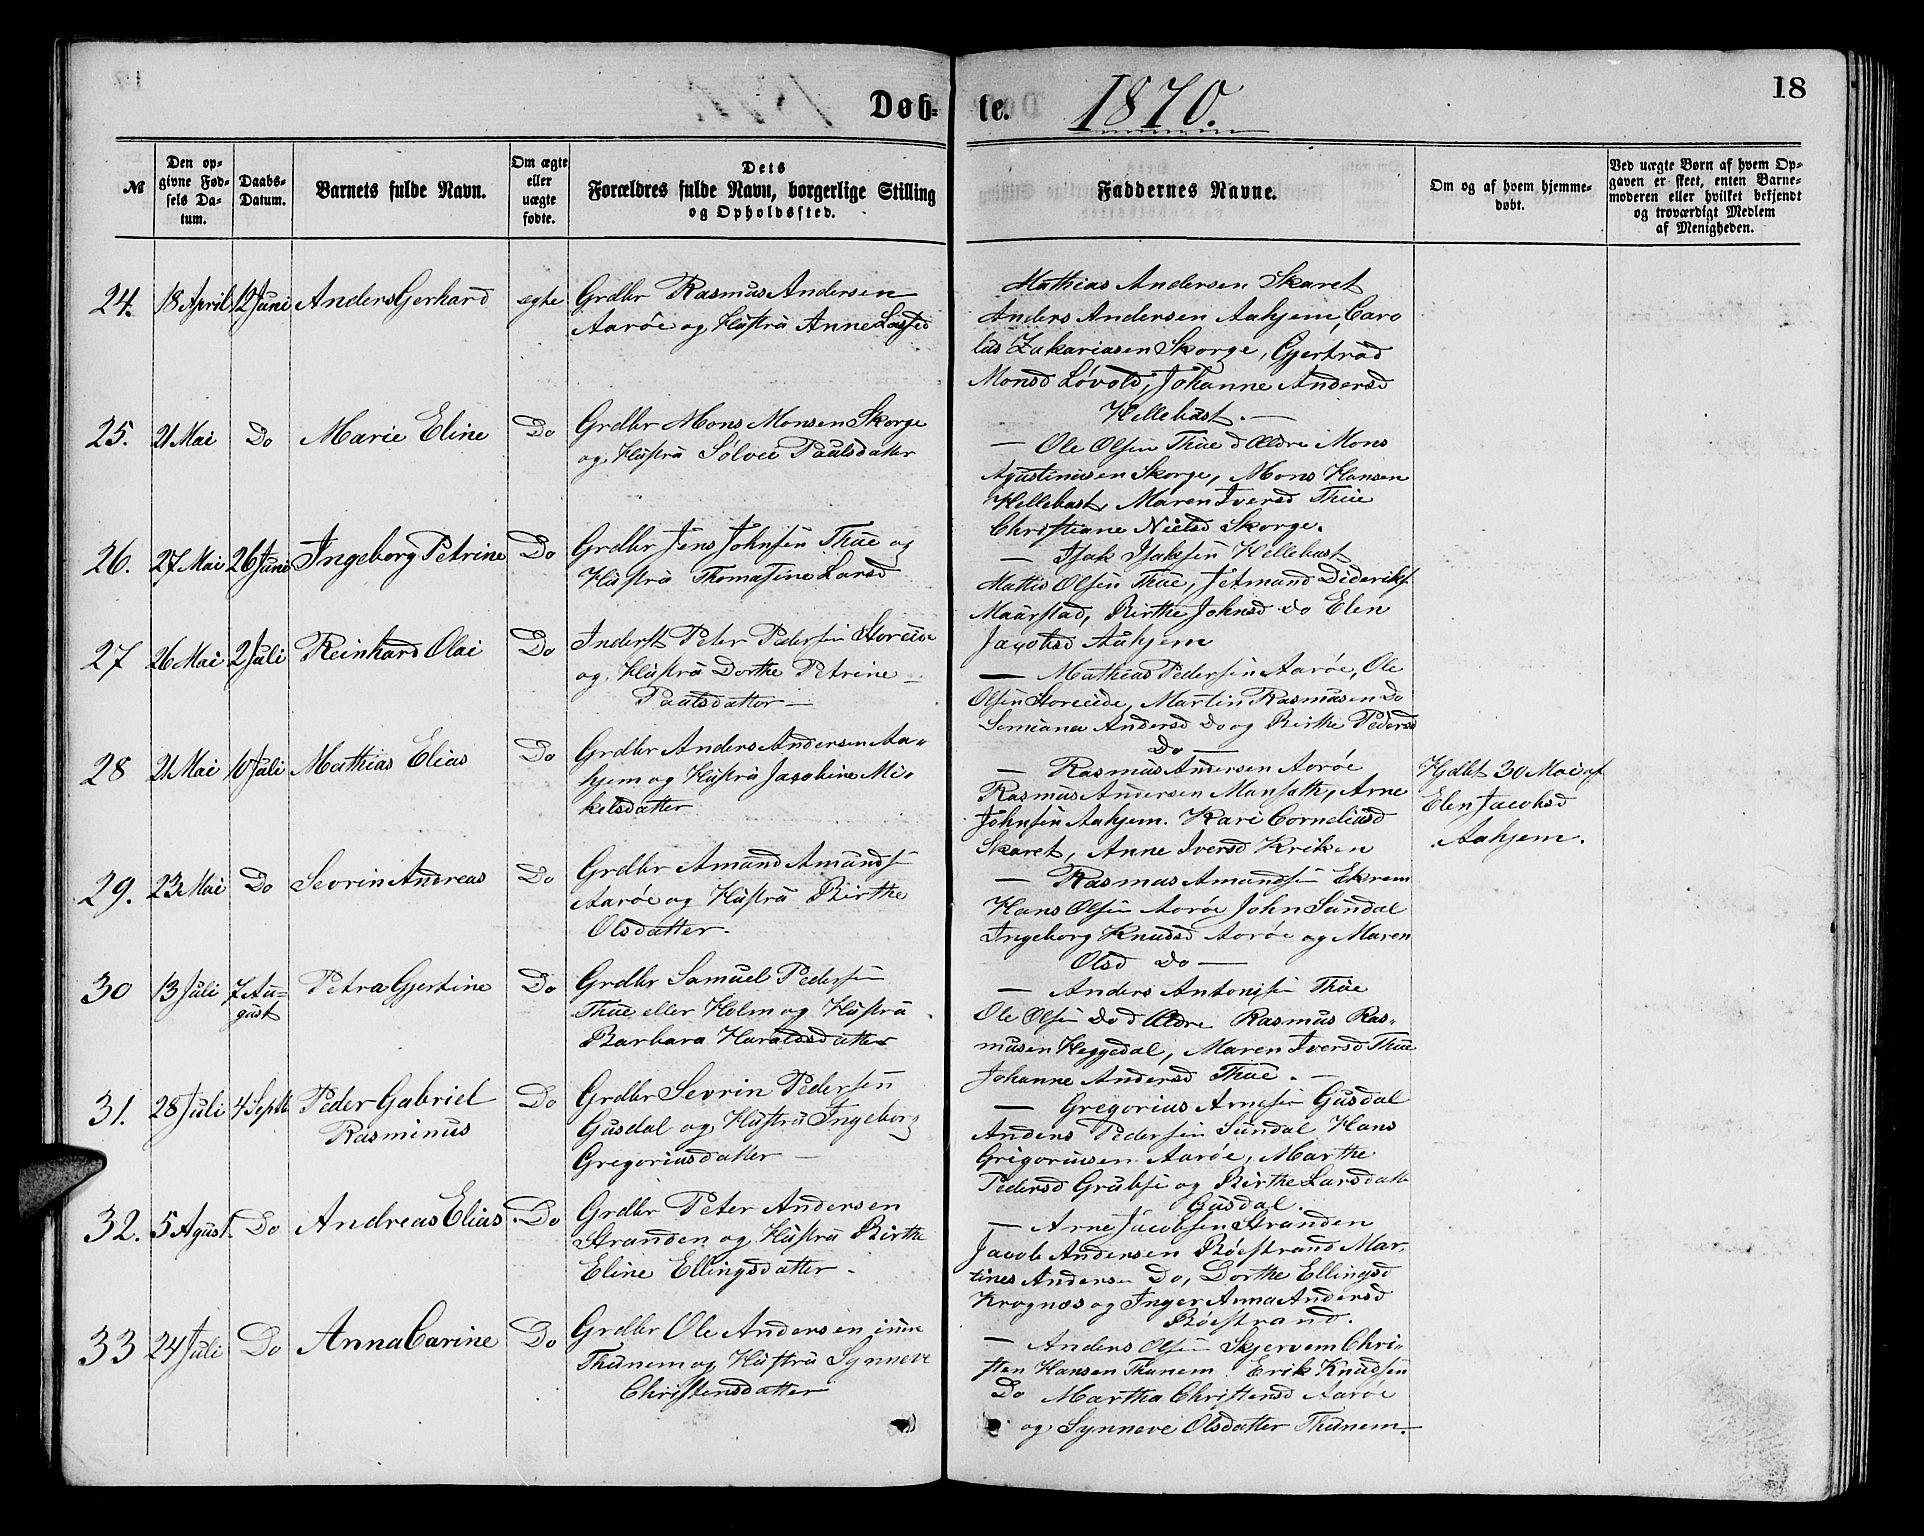 Døb-
te.
1870.
18
№
Den op-
givne Fød-
sels Da-
tum.
Daabs-
Datum.
Barnets fulde Navn.
Om ægte
eller
uægte
fødte.
Dets
Forældres fulde Navn, borgerlige Stilling
og Opholdssted.
Faddernes Navne.
Om og af hvem hjemme-
døbt.
Ved uægte Børn af hvem Op-
gaven er skeet, enten Barne-
moderen eller hvilket bekjendt
og troværdigt Medlem
af Menigheden.
24. 18 April 12 Juni Anders Gerhard ægte
Grdbr Rasmus Andersen
Aarøe og Hustru Anne Lassed
Mathias Andersen Skaret
Anders Andersen Aahjem, Caro
lus Zakariasen Skorge, Gjertrud
Monsd Løvold, Johanne Andersd
Hellebust. —
25. 21 Mai Do Marie Eline Do
Grdbr Mons Monsen Skorge
og Hustru Sølvei Paulsdatter
— Ole Olsen Thue d Ældre Mons
Agustinusen Skorge, Mons Hansen
Hellebust, Maren Iversd Thue
Christiane Nielsd Skorge.
26. 27 Mai 26 Juni Ingeborg Petrine Do
Grdbr Jens Johnsen Thue og
Hustru Thomasine Larsd
— Isak Isaksen Hellebust
Mathis Olsen Thue, Jetmund Dideriks.
Maurstad, Birthe Johnsd Do Elen
Jacobsd Aahjem
27 26 Mai 2 Juli Reinhard Olai Do
Inderst Peter Pedersen Storeide
og Hustru Dorthe Petrine —
Paulsdatter —
— Mathias Pedersen Aarøe, Ole
Olsen Storeide, Martin Rasmusen Do
Semiana Andersd Do og Birthe Pedersd
Do —
28 21 Mai 10 Juli Mathias Elias Do
Grdbr Anders Andersen Aa-
hjem og Hustru Jacobine Mi-
kelsdatter
— Rasmus Andersen Aarøe
Rasmus Andersen Mansath, Arne
Johnsen Aahjem. Kari Corneliusd
Skaret, Anne Iversd Kriken
Hjdbt 30 Mai af
Elen Jacobsd
Aahjem.
29. 23 Mai Do Sevrin Andreas Do
Grdbr Amund Amunds.
Aarøe og Hustru Birthe
Olsdatter.
— Rasmus Amundsen Ekrem
Hans Olsen Aarøe John Sundal
Ingeborg Knudsd Aarøe og Maren
Olsd Do —
30 13 Juli 7 Au-
gust
Petra Gjertine Do
Grdbr Samuel Pedersen
Thue eller Holm og Hustru
Barbara Haraldsdatter
— Anders Antonisen Thue
Ole Olsen Do d Ældre Rasmus Ras-
musen Heggedal, Maren Iversd Thue
Johanne Andersd Thue. —
31. 28 Juli 4 Septb Peder Gabriel
Rasminus
Do
Grdbr Sevrin Pedersen
Gusdal og Hustru Ingeborg
Gregoriusdatter —
— Gregorius Arnesen Gusdal
Anders Pedersen Sundal Hans
Grigoriusen Aarøe, Marthe
Pedersd Grubse og Birthe Larsdatt
Gusdal.
32. 5 Agust. Do Andreas Elias Do
Grdbr Peter Andersen
Stranden og Hustru Birthe
Eline Ellingsdatter.
— Arne Jacobsen Stranden
Jacob Andersen Røestrand Mar-
tines Andersen Do, Dorthe Ellingsd
Krognæs og Inger Anna Andersd
Røestrand.
33 24 Juli Do Anna Carine Do
Grdbr Ole Andersen
Thunem og Hustru Synneve
Christensdatter
— Anders Olsen Skjervem Chri-
sten Hansen Thunem Erik Knudsen
Do Martha Christensd Aarøe
og Synneve Olsdatter Thunem.